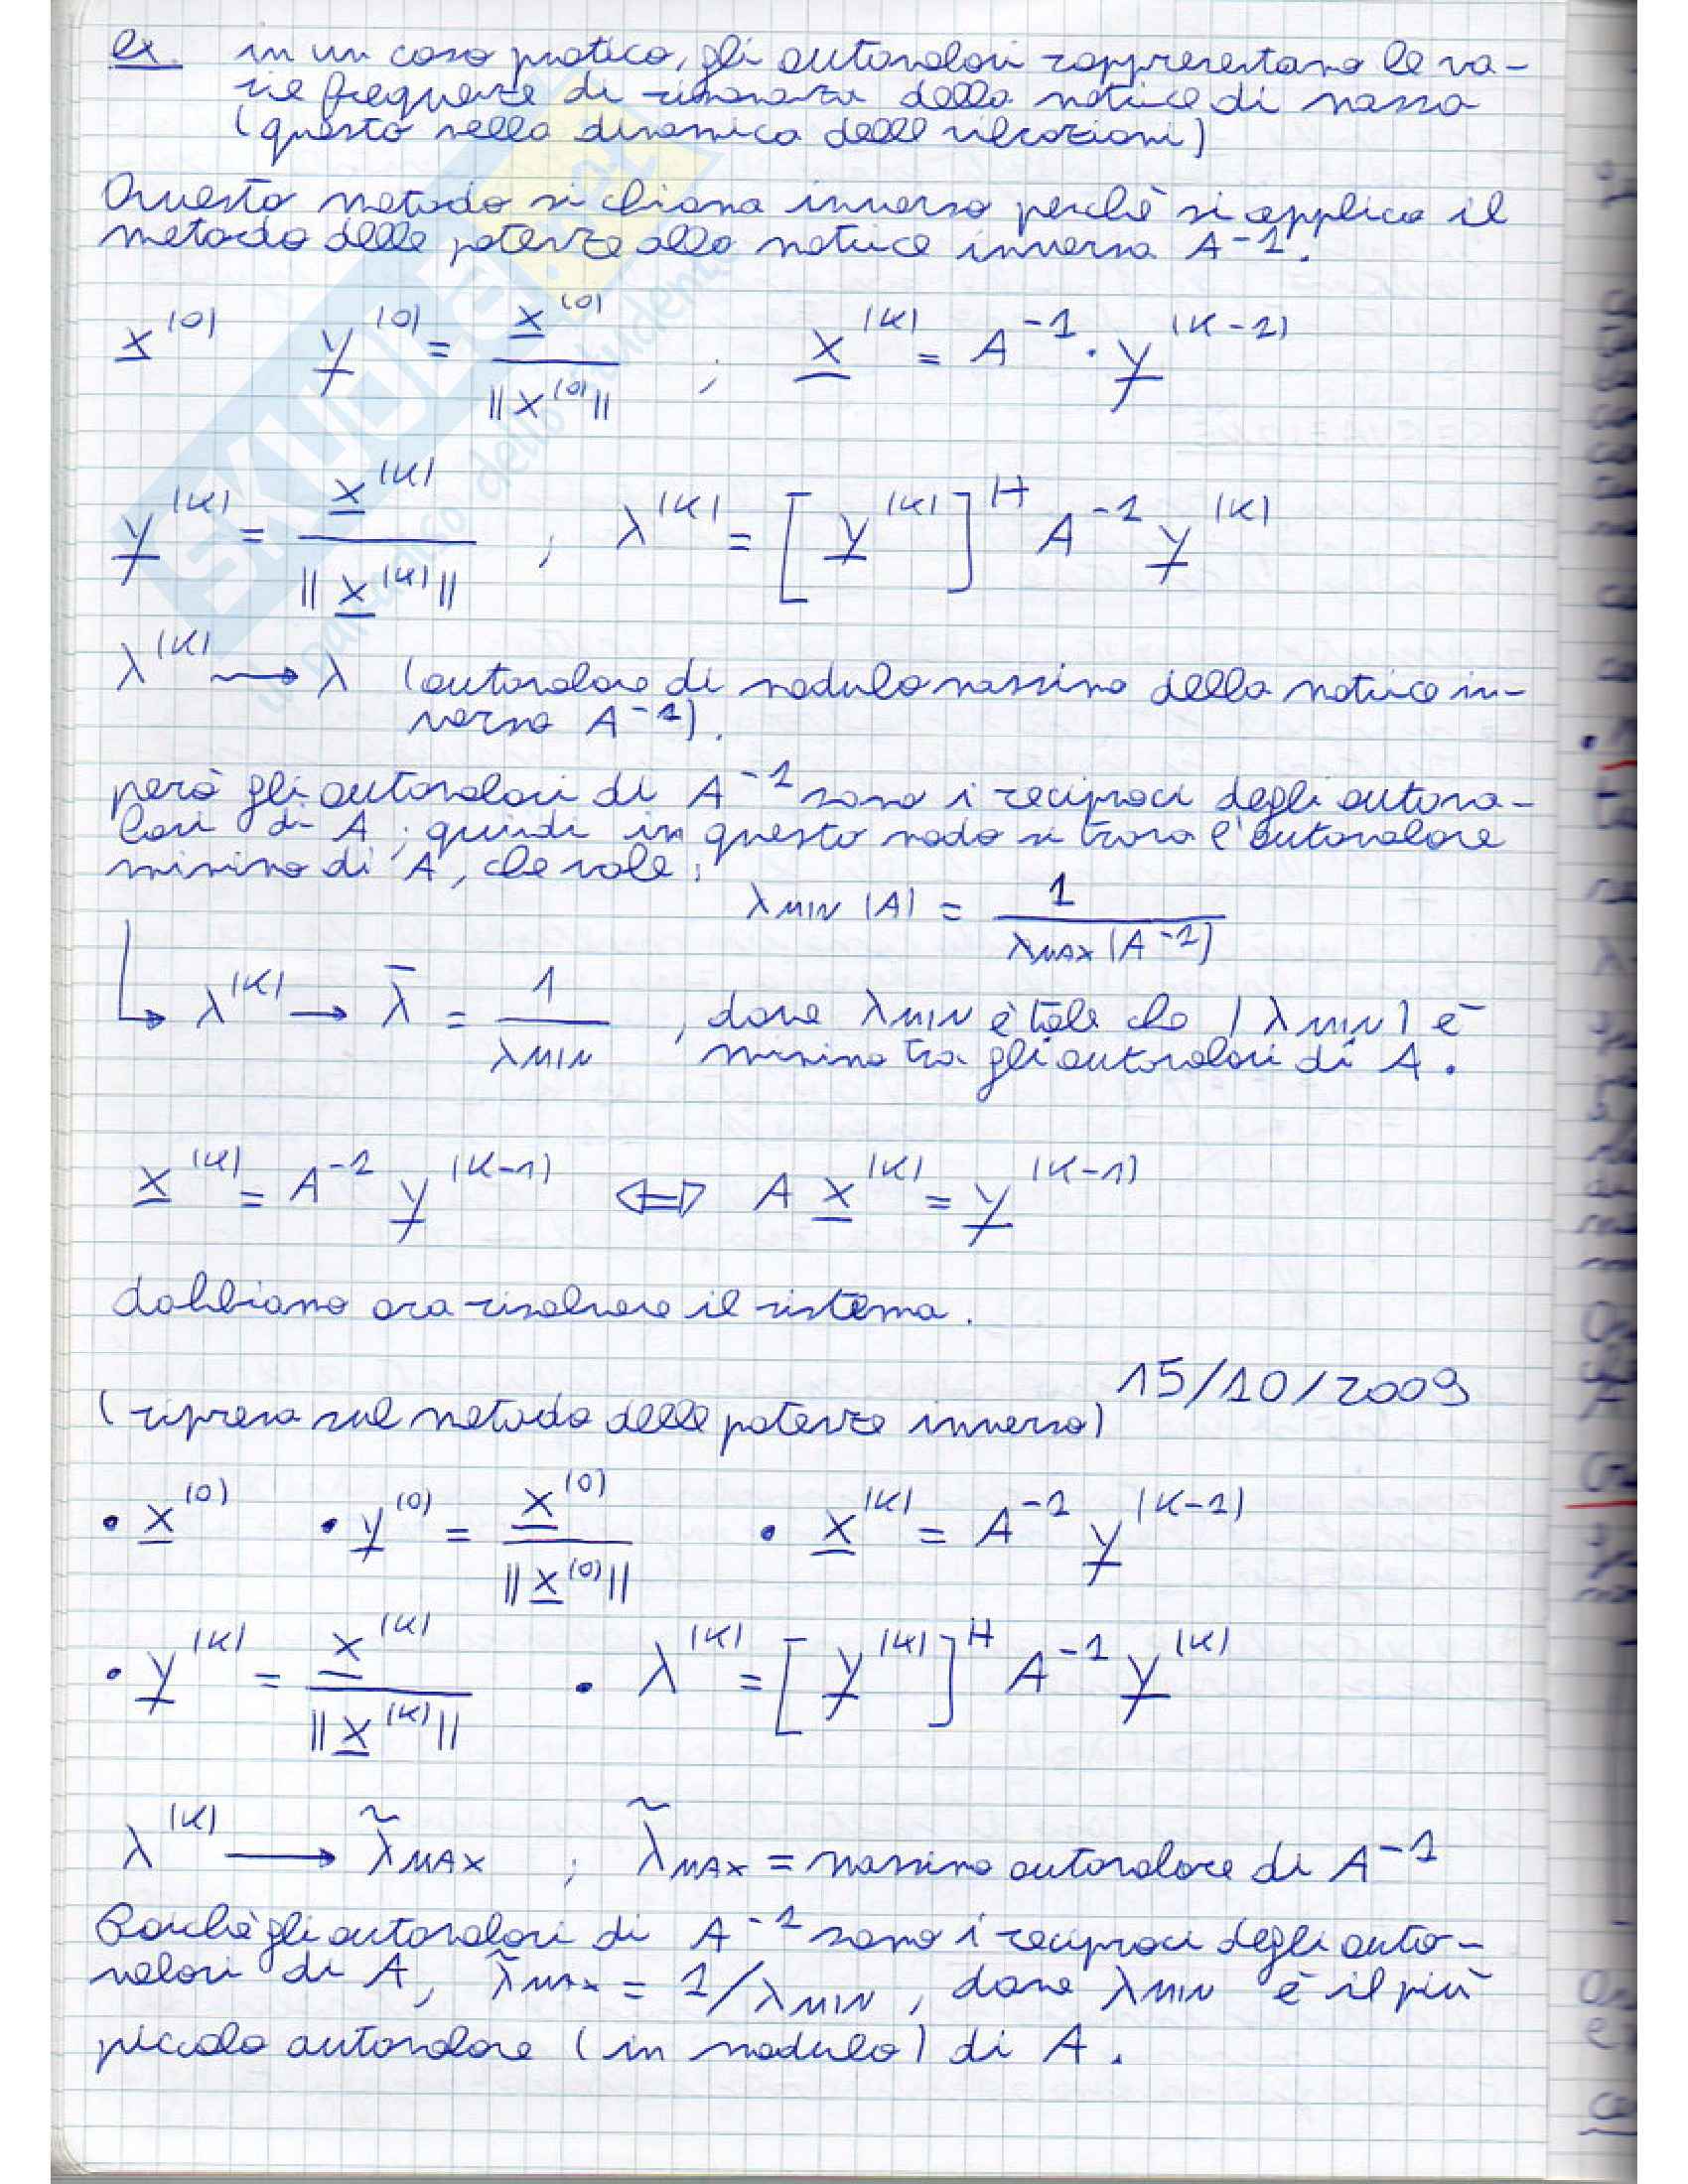 ex. in un caso pratico, gli autovalori rappresentano le va-
rie frequenze di risonanza della matrice di massa
(questo nella dinamica delle vibrazioni)
Questo metodo si chiama inverso perchè si applica il
metodo delle potenze alla matrice inversa A^-1.
x^(0) y^(0) = x^(0) / ||x^(0)|| ; x^(K) = A^-1 · y^(K-1)
y^(K) = x^(K) / ||x^(K)|| ; λ^(K) = [y^(K)]^H A^-1 y^(K)
λ^(K) → λ (autovalore di modulo massimo della matrice in-
versa A^-1).
però gli autovalori di A^-1 sono i reciproci degli autova-
lori di A; quindi in questo modo si trova l'autovalore
minimo di A, che vale:
λMIN (A) = 1 / λMAX (A^-1)
↳ λ^(K) → λ̄ = 1 / λMIN , dove λMIN è tale che |λMIN| è
minimo tra gli autovalori di A.
x^(K) = A^-1 y^(K-1) ⇔ A x^(K) = y^(K-1)
dobbiamo ora risolvere il sistema.
15/10/2009
(ripresa sul metodo delle potenze inverso)
• x^(0) • y^(0) = x^(0) / ||x^(0)|| • x^(K) = A^-1 y^(K-1)
• y^(K) = x^(K) / ||x^(K)|| • λ^(K) = [y^(K)]^H A^-1 y^(K)
λ^(K) → λ̃MAX ; λ̃MAX = massimo autovalore di A^-1
Poichè gli autovalori di A^-1 sono i reciproci degli auto-
valori di A, λ̃MAX = 1/λMIN, dove λMIN è il più
piccolo autovalore (in modulo) di A.